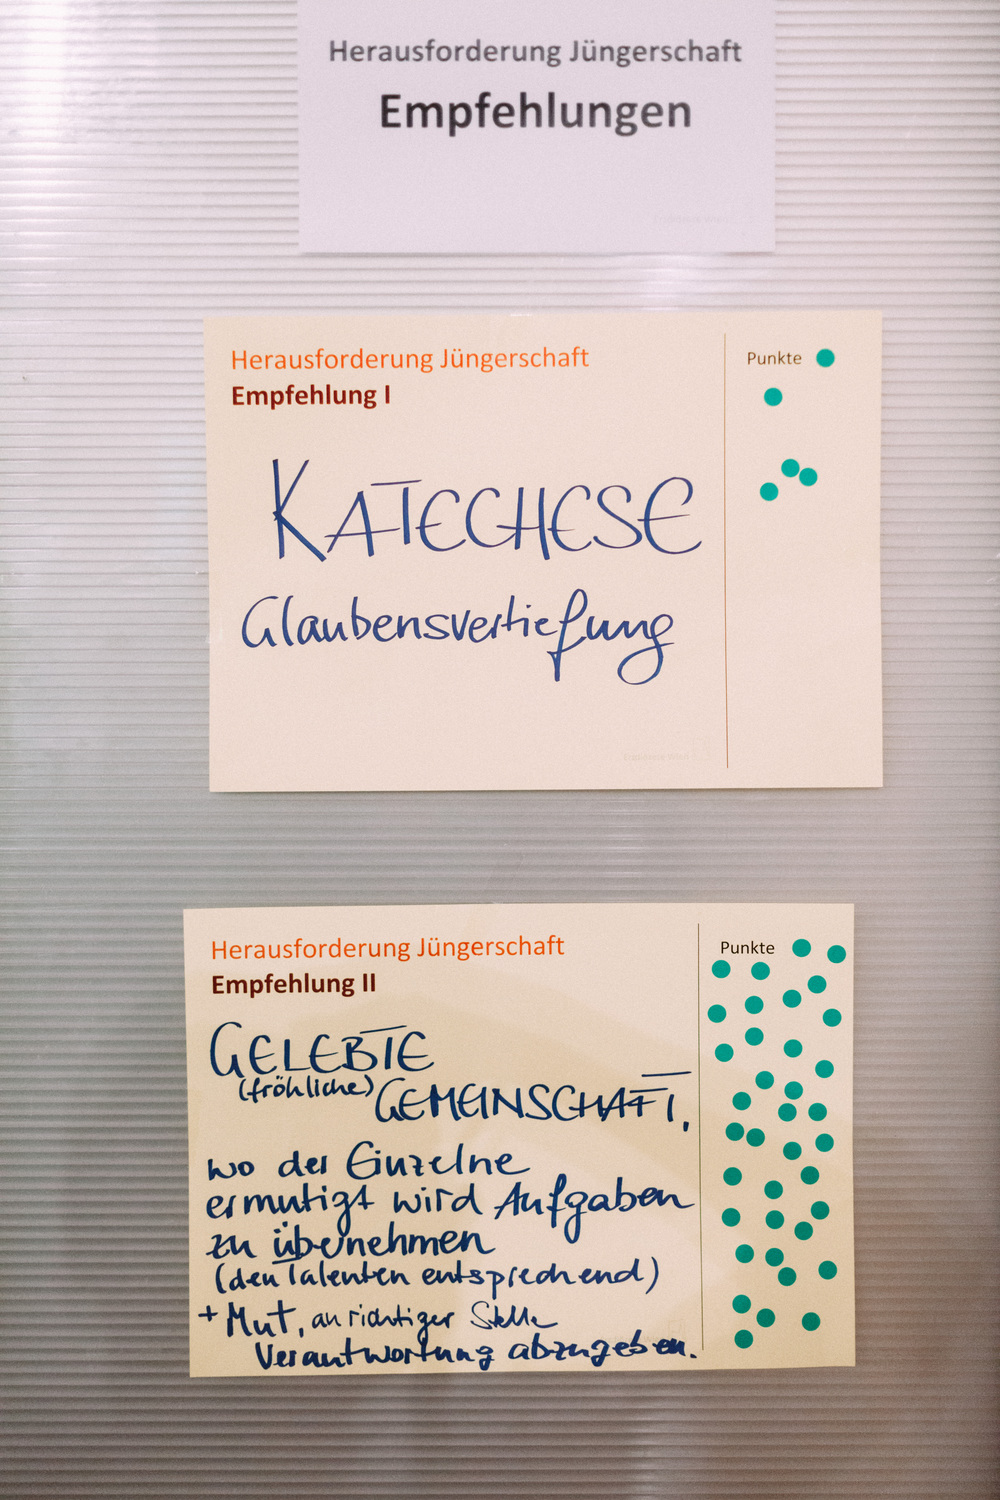 Herausforderung Jüngerschaft
Empfehlungen
Herausforderung Jüngerschaft
Empfehlung I
Punkte
KATECHESE
Glaubensvertiefung
Herausforderung Jüngerschaft
Empfehlung II
Punkte
GELEBTE
(fröhliche) GEMEINSCHAFT,
wo der Einzelne
ermutigt wird Aufgaben
zu übernehmen
(den Talenten entsprechend)
+ Mut, an richtiger Stelle
Verantwortung abzugeben.